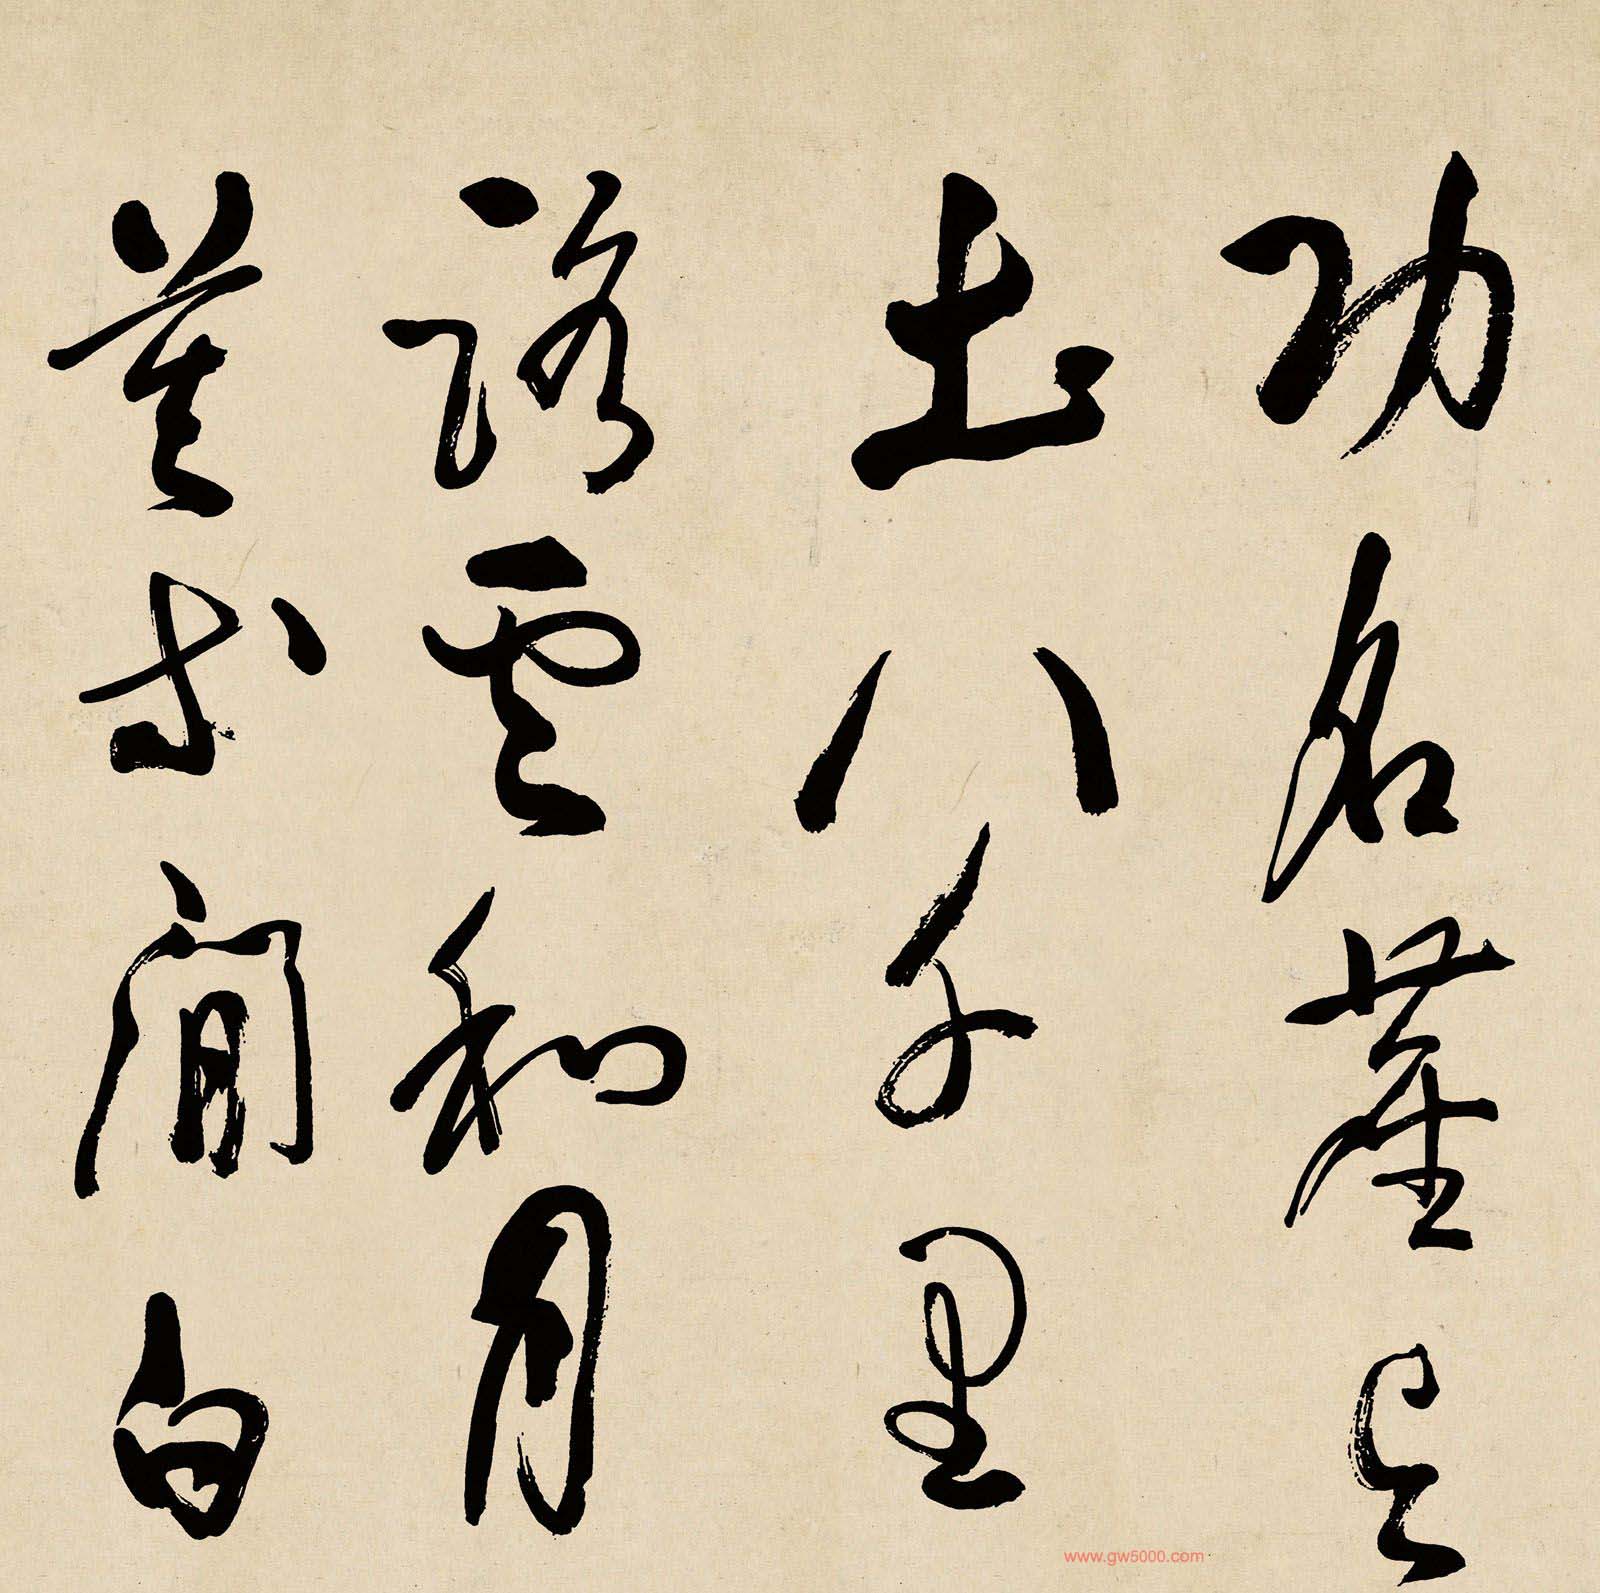 功名塵与
土八千里
路雲和月
莫等閒白
www.gw5000.com